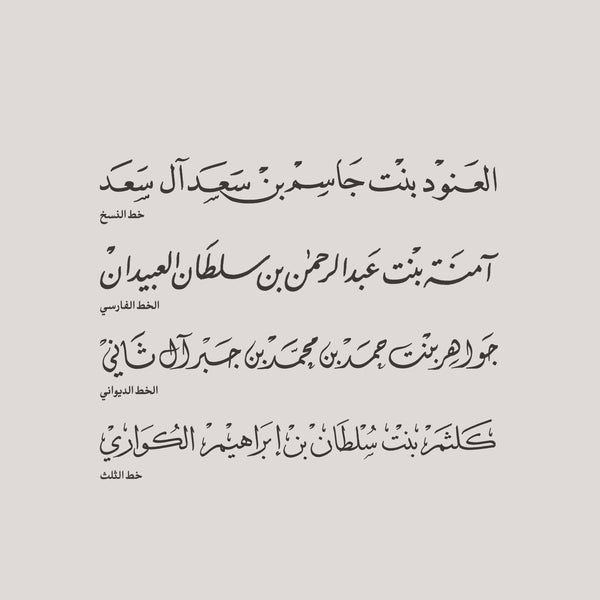 العَنودْ بنْت جَاسِمْ بنْ سَعَدِ آل سَعَد
خط النسخ
آمنَة بنْت عَبدالرحمٰن بن سلطَان العبيدانْ
الخط الفارسي
جَواهِر بنْت حمَدْ بن محمَّدْ بن جَبْر آل ثَانيْ
الخط الديواني
كَلثمْ بنْت سُلطَانْ بْن إبرَاهيْمْ الكُوَاريْ
خط الثلث